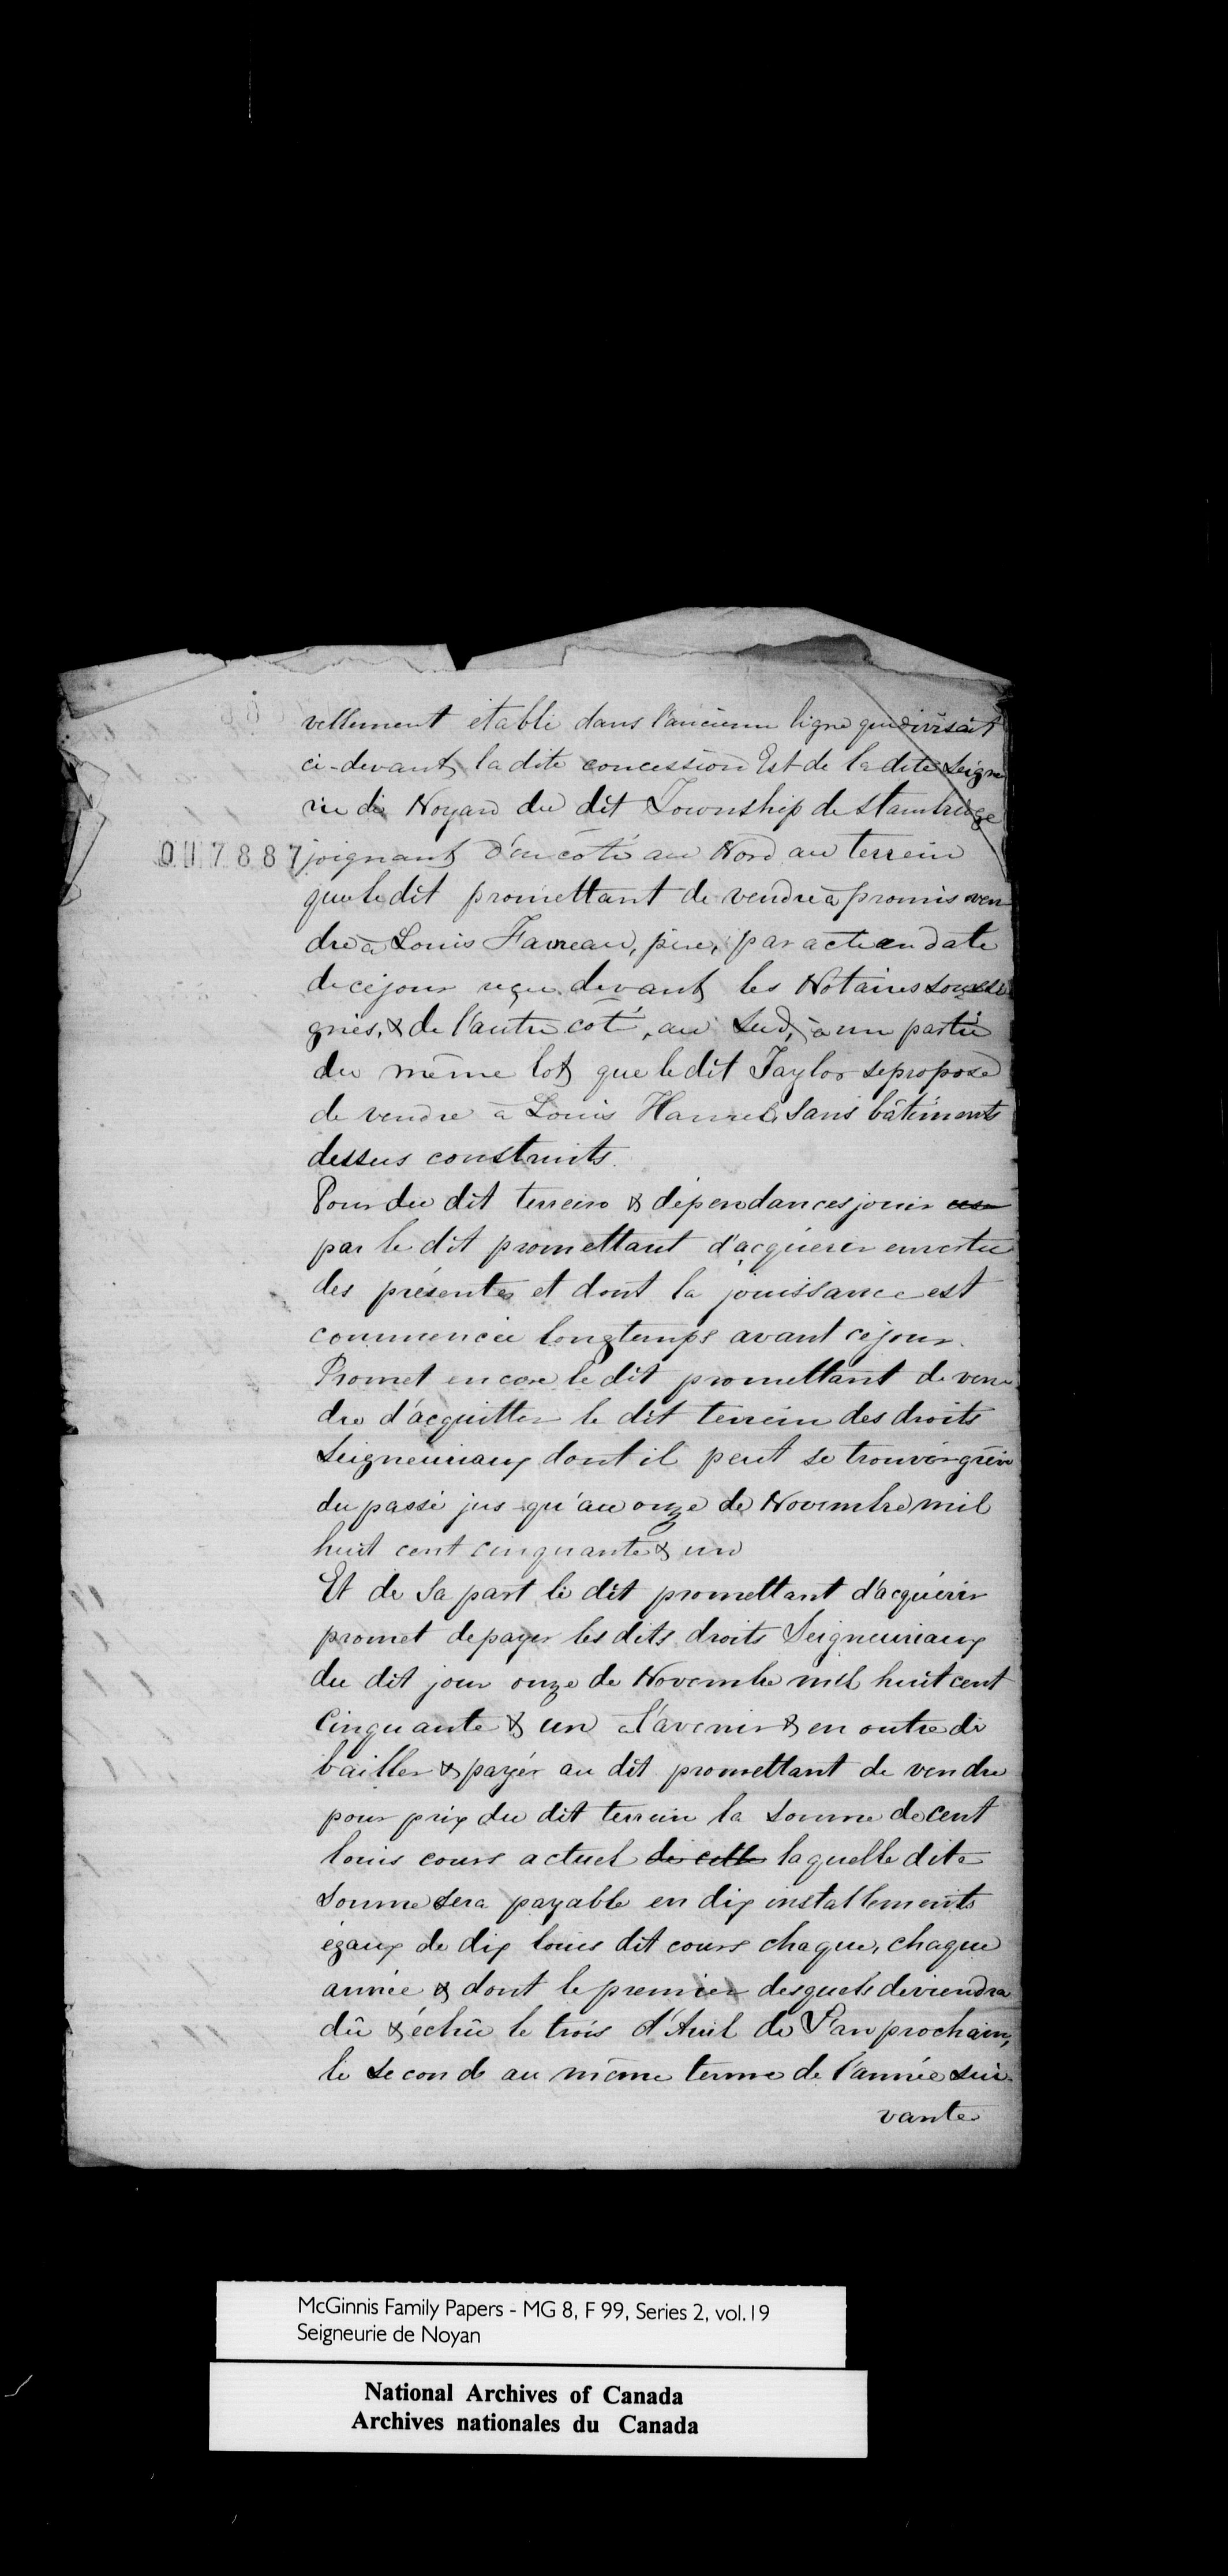 vellement etabli dans l'ancienne ligne qui divisait
ci-devant la dite concession Est de la dite Seigneu
rie de Noyan du dit Township de Stanbridge
017887 joignant d'un côté au Nord au terrein
que le dit promettant de vendre a promis ven
dre à Louis Favreau, père, par acte en date
de ce jour reçu devant les Notaires soussi
gnés, & de l'autre coté, au Sud, à une partie
du même lot que le dit Taylor se propose
de vendre à Louis Hamel, sans bâtiments
dessus construits.
Pour du dit terrein & dépendances jouir
par le dit promettant d'acquérer en vertu
des présentes et dont la jouissance est
commencée longtemps avant ce jour.
Promet encore le dit promettant de ven
dre d'acquitter le dit terrein des droits
Seigneuriaux dont il peut se trouver grévé
du passé jus-qu'au onze de Novembre mil
huit cent cinquante & un
Et de Sa part le dit promettant d'acquérir
promet de payer les dits droits Seigneuriaux
du dit jour onze de Novembre mil huit cent
Cinquante & un à l'avenir & en outre de
bailler & payér au dit promettant de vendre
pour prix du dit terrein la somme de cent
louis cours actuel de cette laquelle dite
somme sera payable en dix installements
égaux de dix louis dit cours chaque, chaque
année & dont le premier desquels deviendra
dû & échû le trois d'Avril de l'an prochain,
le second au même terme de l'année sui-
vante
McGinnis Family Papers - MG 8, F 99, Series 2, vol.19
Seigneurie de Noyan
National Archives of Canada
Archives nationales du Canada